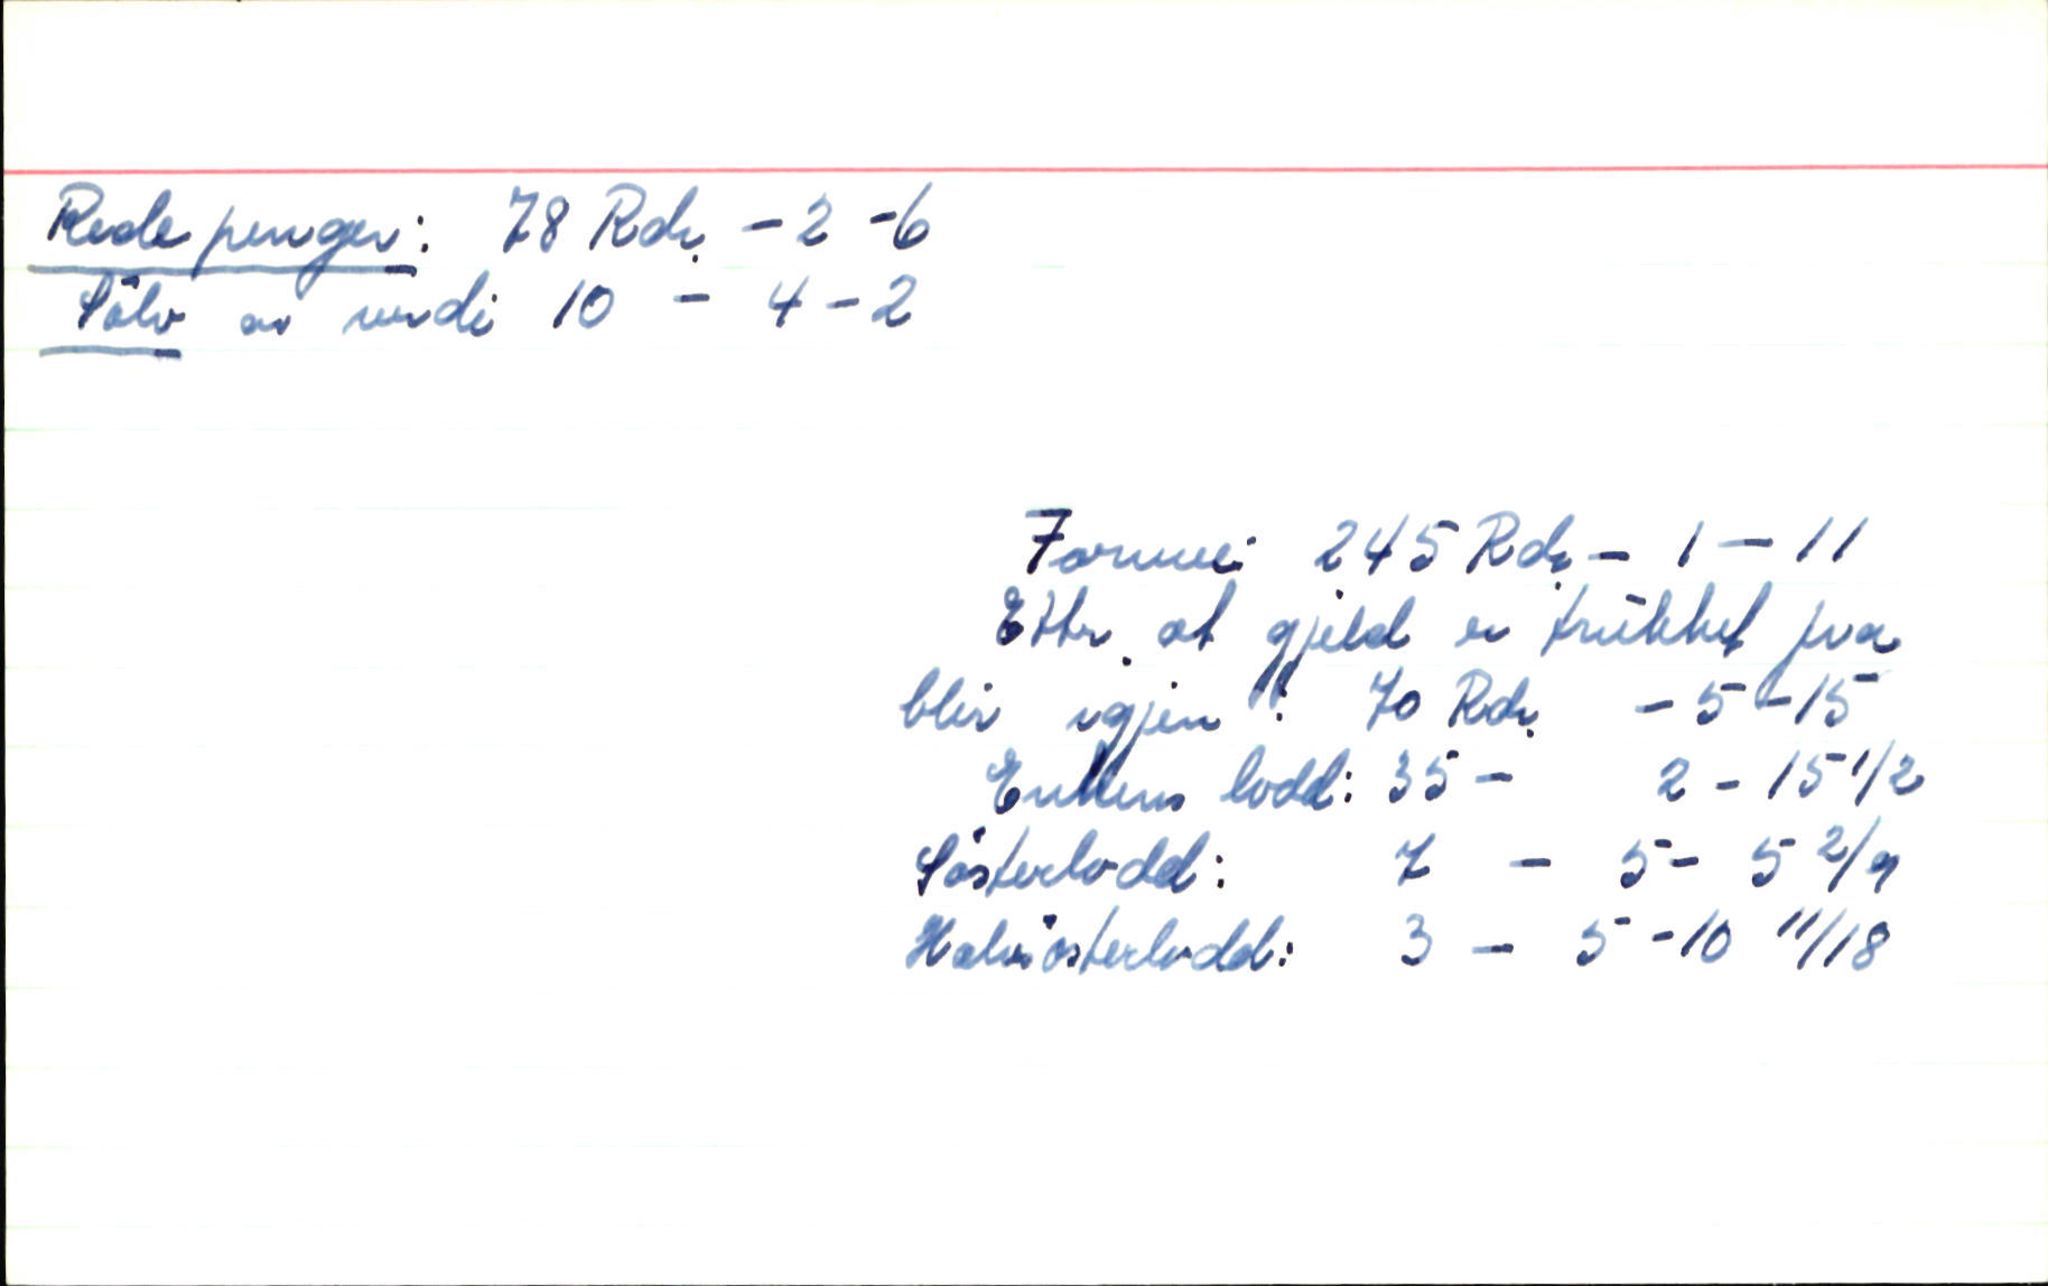 Rede penger: 78 Rdr. - 2 - 6
Sölv av verdi 10 - 4 - 2
Formue: 245 Rdr. - 1 - 11
Etter at gjeld er trukket fra
blir igjen: 70 Rdr. - 5 - 15
Enkens lodd: 35 - 2 - 15 1/2
Sösterlodd: 7 - 5 - 5 2/9
Halvsösterlodd: 3 - 5 - 10 11/18